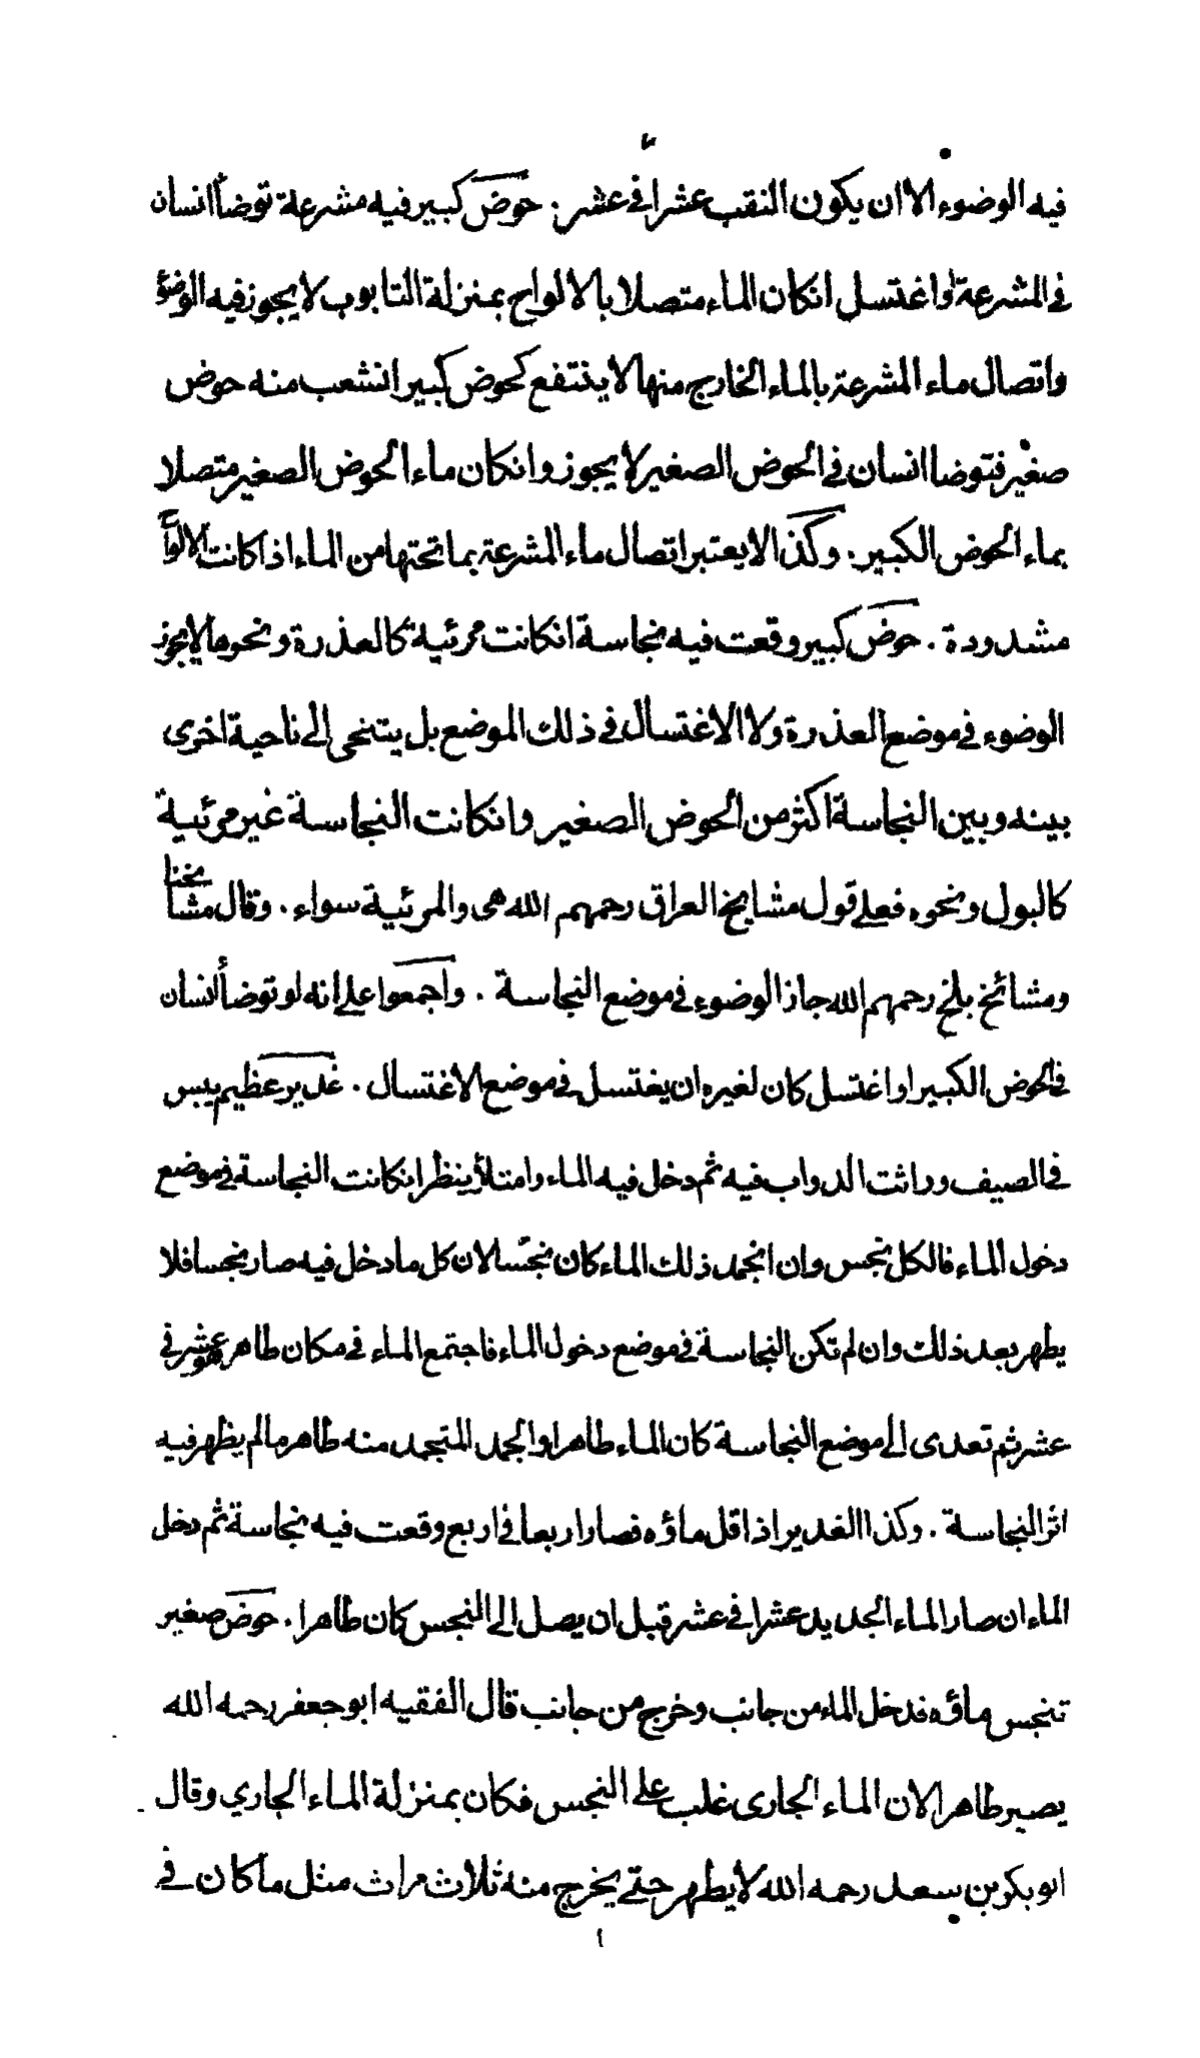 ٧
فيه الوضوء الا ان يكون النقب عشرا فى عشر . حوض كبير فيه مشرعة توضأ انسان
فى المشرعة او اغتسل انكان الماء متصلا بالالواح بمنزلة التابوب لا يجوز فيه الوضؤ
واتصال ماء المشرعة بالماء الخارج منها لا ينتفع كحوض كبير انشعب منه حوض
صغير فتوضا انسان فى الحوض الصغير لا يجوز وانكان ماء الحوض الصغير متصلا
بماء الحوض الكبير . وكذا لا يعتبر اتصال ماء المشرعة بما تحتها من الماء اذا كانت الالواح
مشدودة . حوض كبير وقعت فيه نجاسة انكانت مرئية كالعذرة ونحوها لا يجوز
الوضوء فى موضع العذرة ولا الاغتسال فى ذلك الموضع بل يتنحى الى ناحية اخرى
بينه وبين النجاسة اكثر من الحوض الصغير وانكانت النجاسة غير مرئية
كالبول ونحوه فعلى قول مشايخ العراق رحمهم الله هى والمرئية سواء . وقال مشايخنا
ومشائخ بلخ رحمهم الله جاز الوضوء فى موضع النجاسة . واجمعوا على انه لو توضأ انسان
فى الحوض الكبير او اغتسل كان لغيره ان يغتسل فى موضع الاغتسال . غدير عظيم يبس
فى الصيف وراثت الدواب فيه ثم دخل فيه الماء وامتلأ ينظر انكانت النجاسة فى موضع
دخول الماء فالكل نجس وان انجمد ذلك الماء كان نجسا لان كل ما دخل فيه صار نجسا فلا
يطهر بعد ذلك وان لم تكن النجاسة فى موضع دخول الماء فاجتمع الماء فى مكان طاهر هو عشر فى
عشر ثم تعدى الى موضع النجاسة كان الماء طاهرا والجمد المتجمد منه طاهر ما لم يظهر فيه
اثر النجاسة . وكذا الغدير اذا قل ماؤه فصار اربعا فى اربع وقعت فيه نجاسة ثم دخل
الماء ان صار الماء الجديد عشرا فى عشر قبل ان يصل الى النجس كان طاهرا . حوض صغير
تنجس ماؤه فدخل الماء من جانب وخرج من جانب قال الفقيه ابو جعفر رحمه الله
يصير طاهرا لان الماء الجارى غلب على النجس فكان بمنزلة الماء الجاري وقال
ابو بكر بن سعد رحمه الله لا يطهر حتى يخرج منه ثلاث مرات مثل ما كان فى